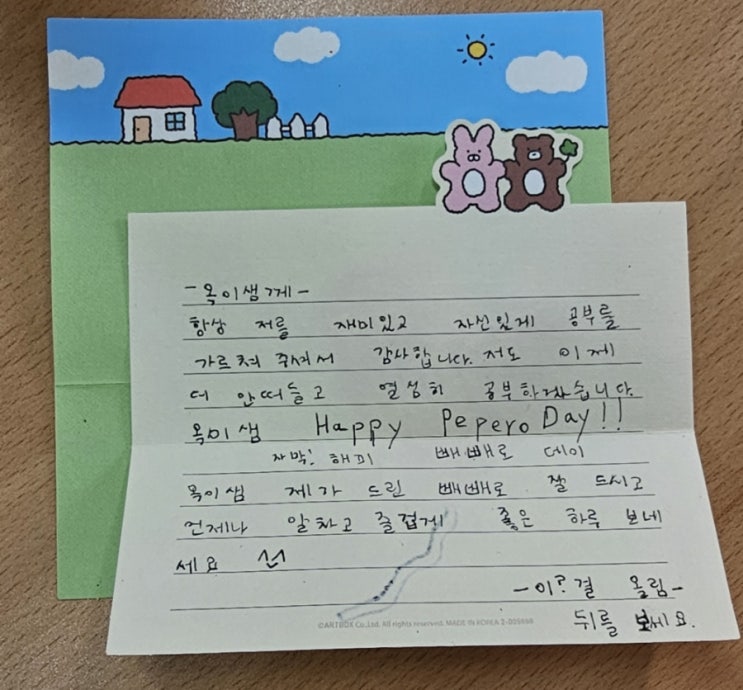 -옥이샘께-
항상 저를 재미있고 자신있게 공부를
가르쳐 주셔서 감사합니다. 저도 이제
더 안떠들고 열심히 공부하겠습니다.
옥이샘 Happy Pepero Day!!
자막: 해피 빼빼로 데이
옥이샘 제가 드린 빼빼로 잘 드시고
언제나 알차고 즐겁게 좋은 하루 보네
세요
-이?결 올림-
뒤를 보세요.
©ARTBOX Co.,Ltd. All rights reserved. MADE IN KOREA